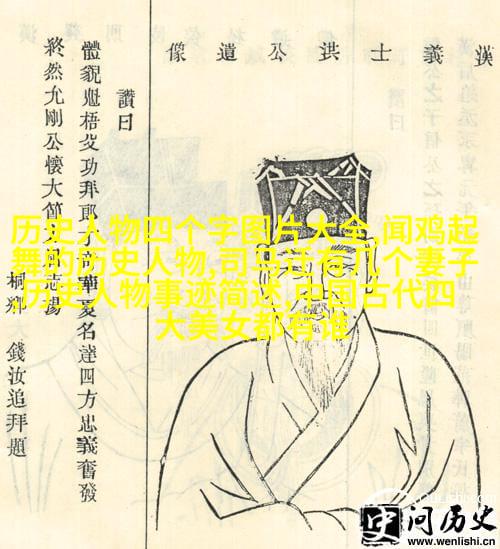 漢義士洪公遺像
讚曰
體貌魁梧文功拜郎才高華夏名達四方忠義奮發
終然允剛公懷大節志揚
桐鄉 錢汝追拜題
历史人物四个字图片大全,闻鸡起
舞的历史人物,司马迁有几个妻子
,历史人物事迹简述,中国古代四
大美女都有谁
问历史
www.wenlishi.cn